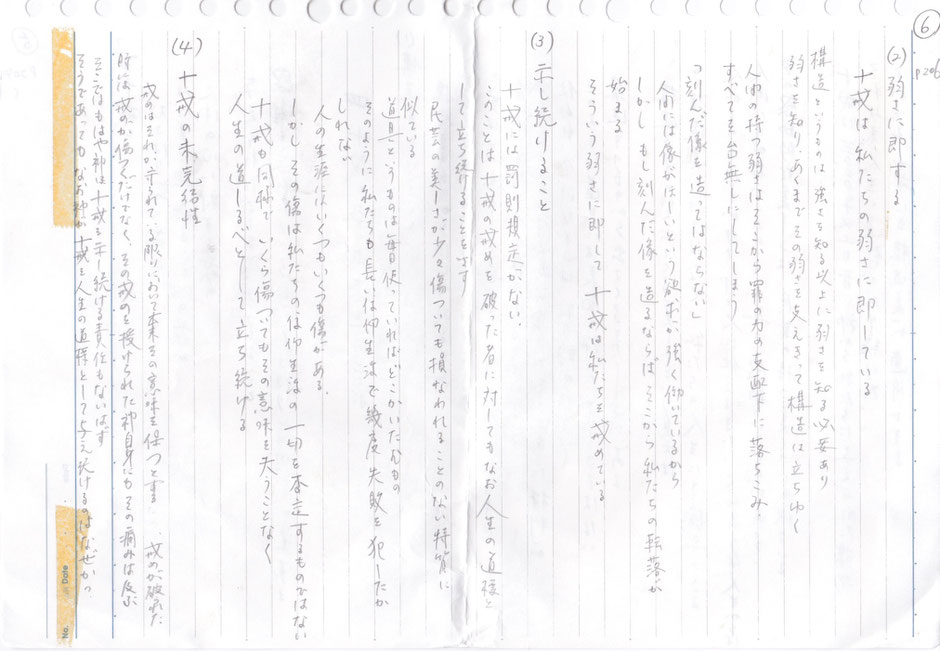 ⑥
p206
(2) 弱さに即する
十戒は、私たちの弱さに即している
構造というものは、強さを知る以上に弱さを知る必要あり
弱さを知り、あくまでその弱さを支えきって構造は立ちゆく
人間の持つ弱さはそこから罪の力の支配下に落ちこみ、
すべてを台無しにしてしまう
「刻んだ像を造ってはならない」
人間には像がほしいという欲求が強く働いているから
しかし もし刻んだ像を造るならば そこから私たちの転落が
始まる
そういう弱さに即して十戒は私たちを戒めている
(3) 示し続けること
十戒には罰則規定がない。
このことは十戒の戒めを破った者に対してもなお人生の道標と
して立ち続けることを示す
民芸の美しさが少々傷ついても損なわれることのない特質に
似ている
道具というものは毎日使っていればどこかいたむもの
そのように私たちも長い信仰生活で幾度失敗を犯したか
しれない
人の生涯にはいくつもいくつも傷がある。
しかし その傷は私たちの信仰生活の一切を否定するものではない
十戒も同様で いくら傷ついてもその意味を失うことなく
人生の道しるべとして立ち続ける
(4) 十戒の未完結性
戒めはそれが守られている限りにおいて本来の意味を保つとする 戒めが破れた
時には戒めが傷つくだけでなく、その戒めを授けられた神自身にもその痛みは及ぶ
そこではもはや神は十戒を示し続ける責任もないはず
そうであってもなお神が十戒を人生の道標として与え続けるのはなぜか?
No.
Date